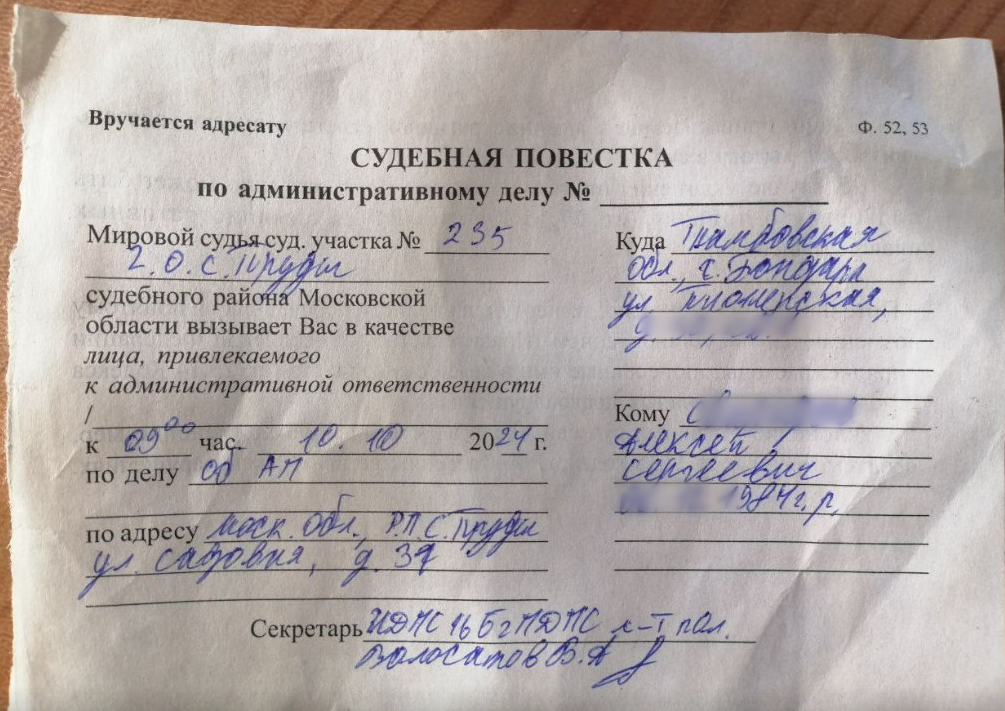 Вручается адресату
Ф. 52, 53
СУДЕБНАЯ ПОВЕСТКА
по административному делу №
Мировой судья суд. участка № 235
г.о. С. Пруды
судебного района Московской
области вызывает Вас в качестве
лица, привлекаемого
к административной ответственности
/
к 09 00 час. 10.10 2024 г.
по делу об АП
по адресу моск. обл., Р.П. С. Пруды
ул. садовая, д. 37
Куда Тамбовская
обл., г. Бондари
ул.
д.
Кому С
Алексей
Сергеевич
1984 г.р,
Секретарь ИДПС 1б 6г ПДПС л-т пол.
Волосатов В.А